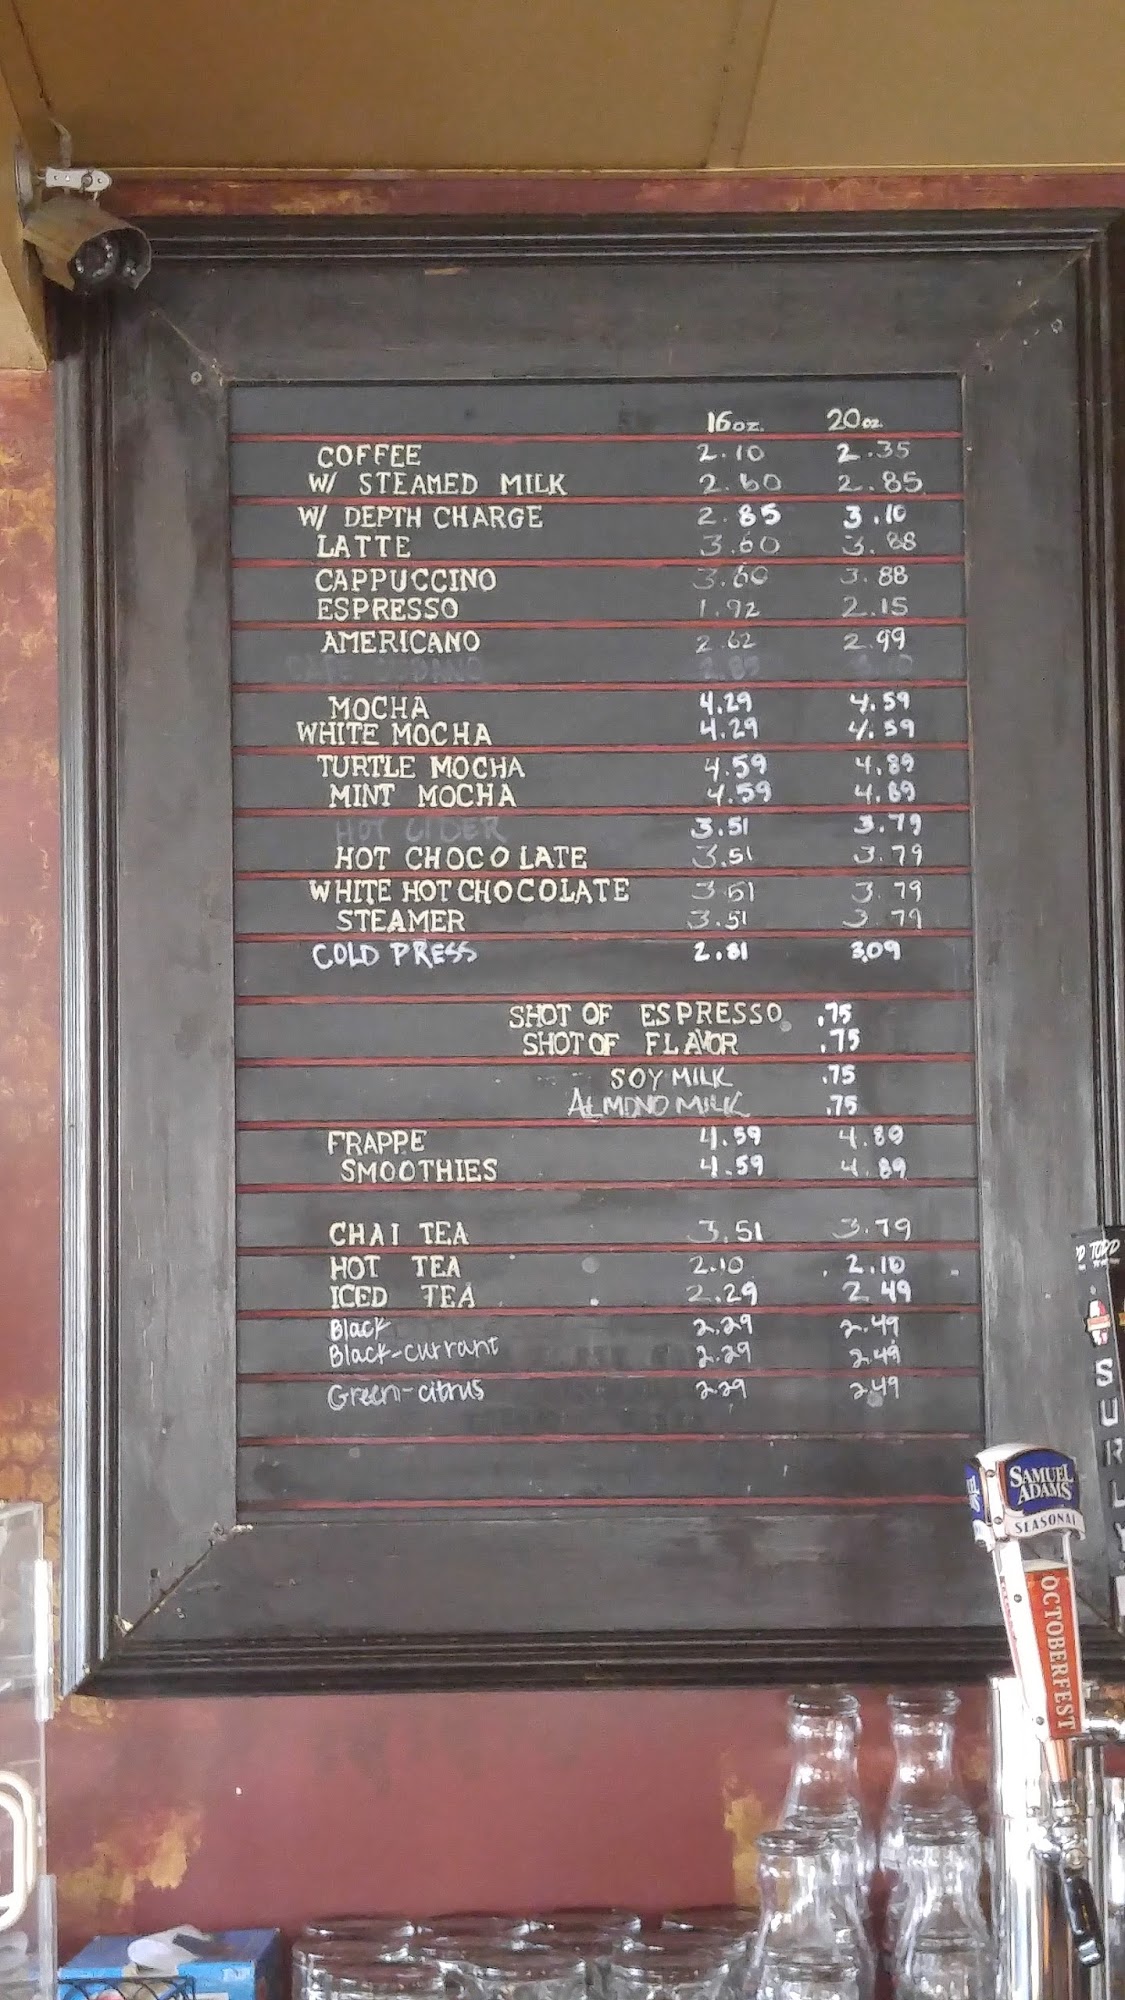 16oz. 20oz.
COFFEE 2.10 2.35
W/ STEAMED MILK 2.60 2.85
W/ DEPTH CHARGE 2.85 3.10
LATTE 3.60 3.88
CAPPUCCINO 3.60 3.88
ESPRESSO 1.92 2.15
AMERICANO 2.62 2.99
MOCHA 4.29 4.59
WHITE MOCHA 4.29 4.59
TURTLE MOCHA 4.59 4.89
MINT MOCHA 4.59 4.89
HOT CIDER 3.51 3.79
HOT CHOCOLATE 3.51 3.79
WHITE HOT CHOCOLATE 3.51 3.79
STEAMER 3.51 3.79
COLD PRESS 2.81 3.09
SHOT OF ESPRESSO .75
SHOT OF FLAVOR .75
SOY MILK .75
ALMOND MILK .75
FRAPPE 4.59 4.89
SMOOTHIES 4.59 4.89
CHAI TEA 3.51 3.79
HOT TEA 2.10 2.10
ICED TEA 2.29 2.49
Black 2.29 2.49
Black-currant 2.29 2.49
Green-citrus 2.29 2.49
TODD
SURLY
SAMUEL
ADAMS
SEASONAL
OCTOBERFEST